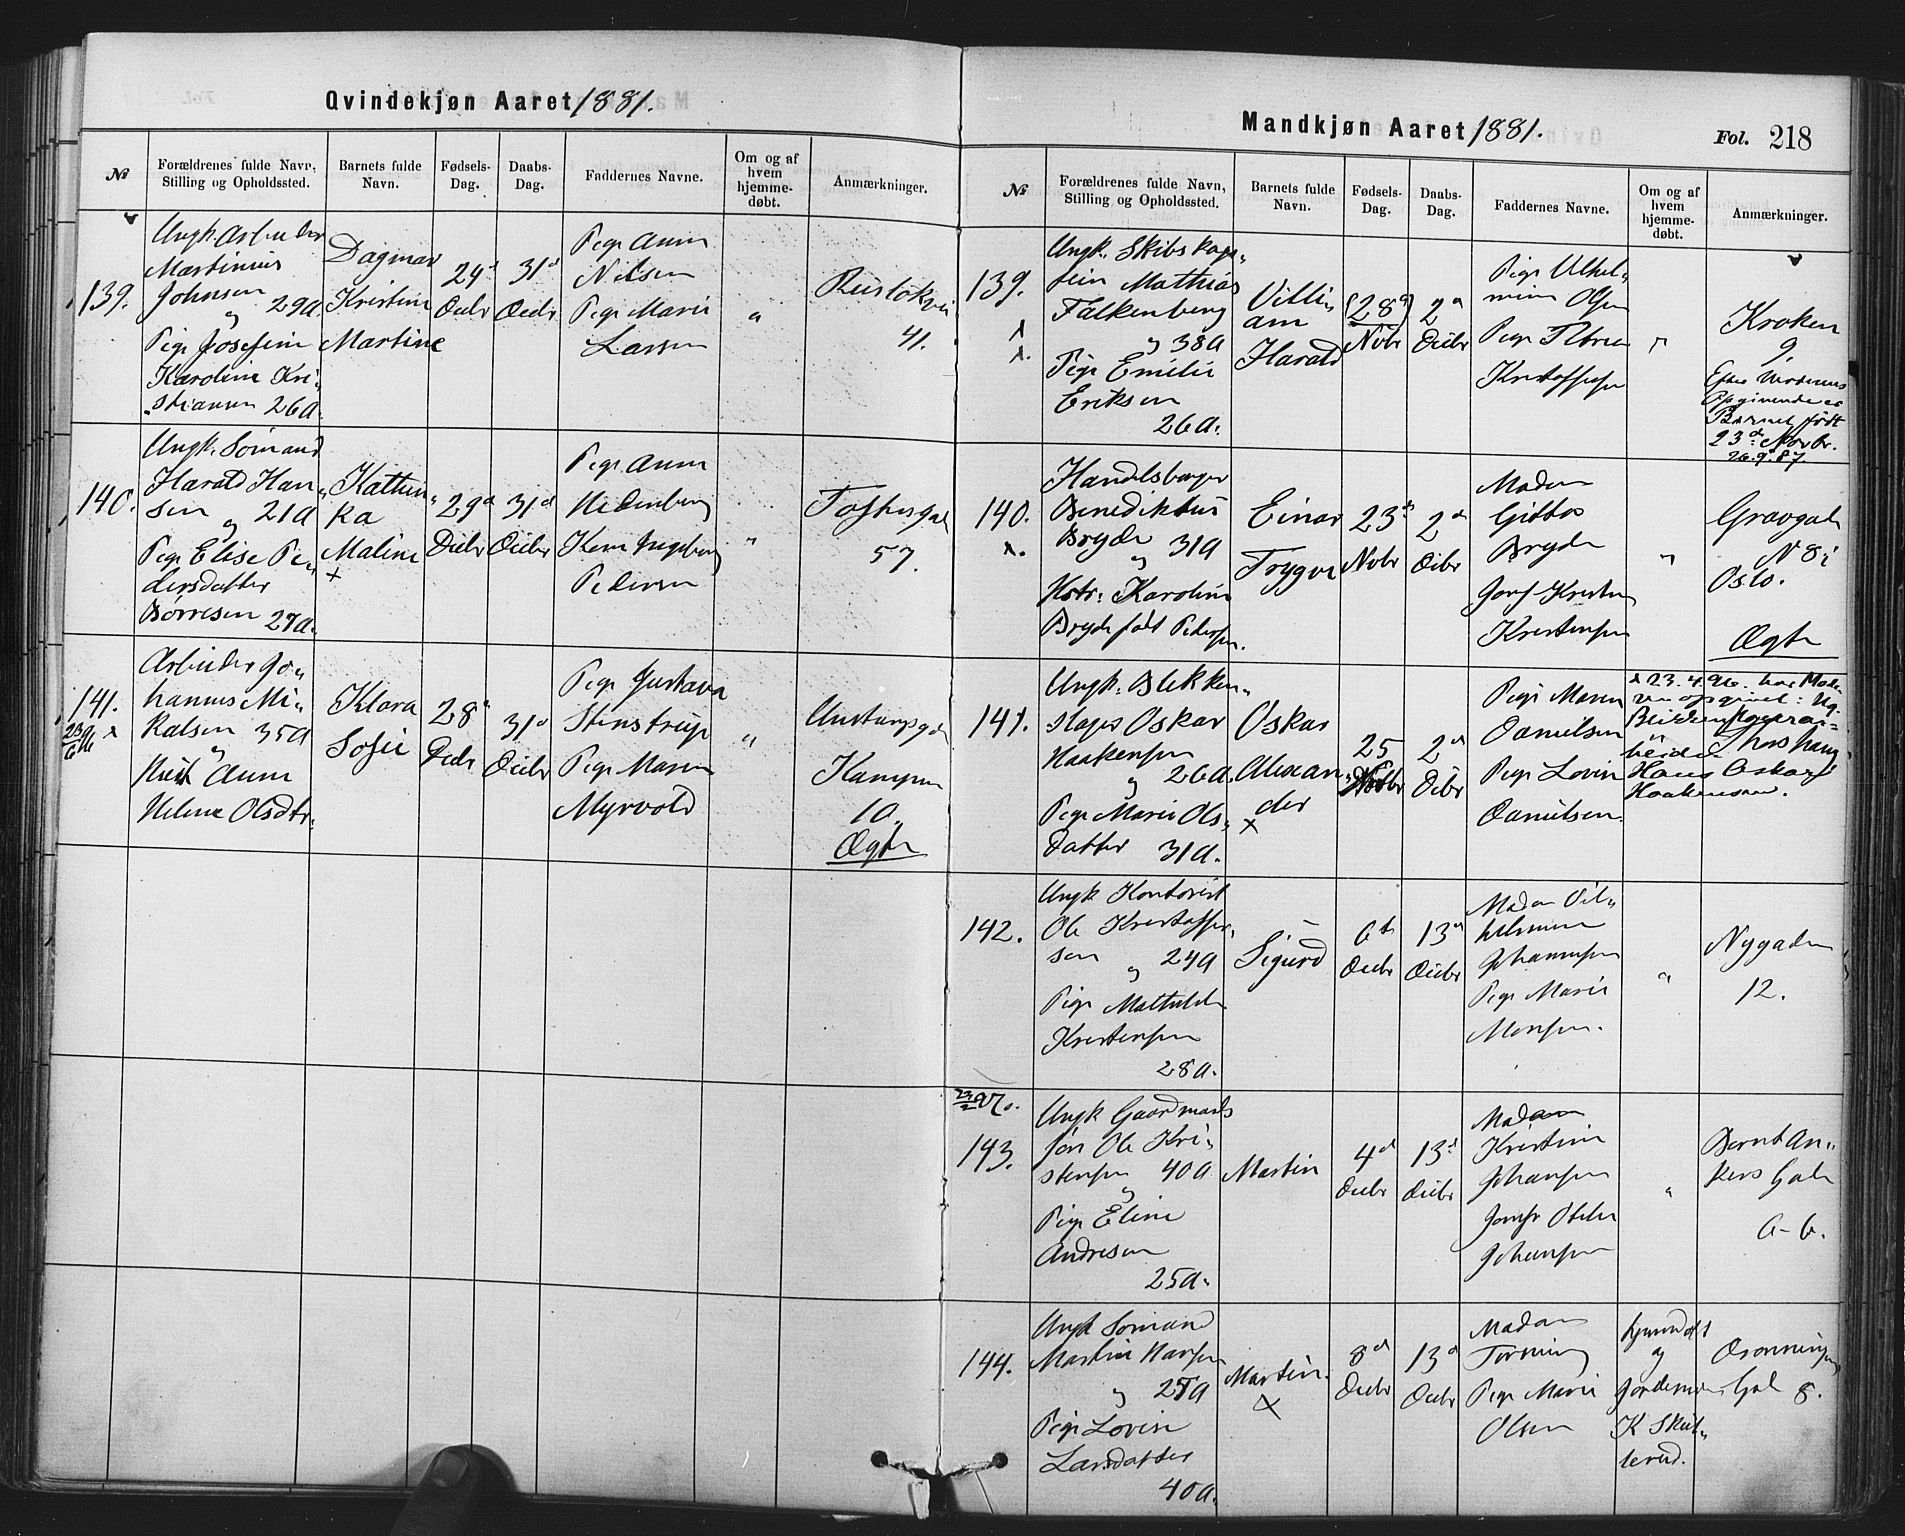 Qvindekjøn Aaret 1881.
№
Forældrenes fulde Navn,
Stilling og Opholdssted.
Barnets fulde
Navn.
Fødsels-
Dag.
Daabs-
Dag.
Faddernes Navne.
Om og af
hvem
hjemme-
døbt.
Anmærkninger.
139.
Ungk. Arbeider
Martinius
Johnsen
og 29a
Pige Josefine
Karoline Kri-
stiansen 26a.
Dagmar
Kristine
Martine
24d
Decbr
31d
Decbr
Pige Anna
Nilsen
Pige Marie
Larsen
"
Ruseløkvei
41.
140.
Ungk. Sømand
Harald Han-
sen og 21a
Pige Elise Pe-
dersdatter
Børresen 27a.
Kathin-
ka
Maline
x
29d
Decbr
31d
Decbr
Pige Anna
Hedenberg
Kone Ingeborg
Pedersen
"
Toftesgade
57.
141.
x
Arbeider Jo-
hannes Mi-
kalsen 35a
og
Anne
Helene Olsdtr.
Klara
Sofie
28d
Decbr
31d
Decbr
Pige Gustava
Stenstrup
Pige Maren
Myrvold
"
Kampen
10.
Ægte
Mandkjøn Aaret 1881.
Fol. 218
№
Forældrenes fulde Navn,
Stilling og Opholdssted.
Barnets fulde
Navn.
Fødsels-
Dag.
Daabs-
Dag.
Faddernes Navne.
Om og af
hvem
hjemme-
døbt.
Anmærkninger.
139.
x
x.
Ungk. Skibskap-
tein Mathias
Falkenberg
og 38a
Pige Emilie
Eriksen
26a.
Villi-
am
Harald
(28d)
Novbr
2d
Decbr
Pige Vilhel-
mine Olsen
Pige Petrea
Kristoffersen
"
Kroken
9.
Efter Moderens
Opgivende er
Barnet født
23de Novbr.
26.9.87.
140.
x.
Handelsborger
Benediktus
Bryde
og 31a
Hstr. Karoline
Bryde født Pedersen.
Einar
Trygve
23d
Novbr
2d
Decbr
Madam
Gibbo
Bryde
Jomf. Kristine
Kristensen
"
Grøvgade
N 8 i
Oslo.
Ægte
141.
Ungk. Blikken-
slager Oskar
Haakensen
og 26a
Pige Marie Ols-
datter 31a.
Oskar
Alexan-
der
x
25
Novbr
2d
Decbr
Pige Maren
Danielsen
Pige Lovise
Danielsen.
x 23.4.96. har Mode-
ren opgivet: Ug.
Hans Oskar
Haakensen.
142.
Ungk Kontorist
Ole Kristoffer-
sen og 24a
Pige Mathilde
Kristensen
28a.
Sigurd
6t
Decbr
13d
Decbr
Madam Vil-
helmine
Johannesen
Pige Marie
Monsen.
"
Nygaden
12.
143.
Ungk Gaardmands
søn Ole Kri-
stensen 40a
og
Pige Eline
Andresen
25a.
Martin
4d
Decbr
13d
Decbr
Madam
Kristine
Johansen
Jomfr Otilie
Johansen
"
Bernt An-
kers Gade
6-b.
144.
Ungk Sømand
Martin Hansen
og 25a
Pige Lovise
Larsdatter
40a.
Martin.
x
8d
Decbr
13d
Decbr
Madam
Tørning
Pige Marie
Olsen
hjemmedøbt
af
Jordemor
K Skut-
terud.
Dronningens
Gade 8.